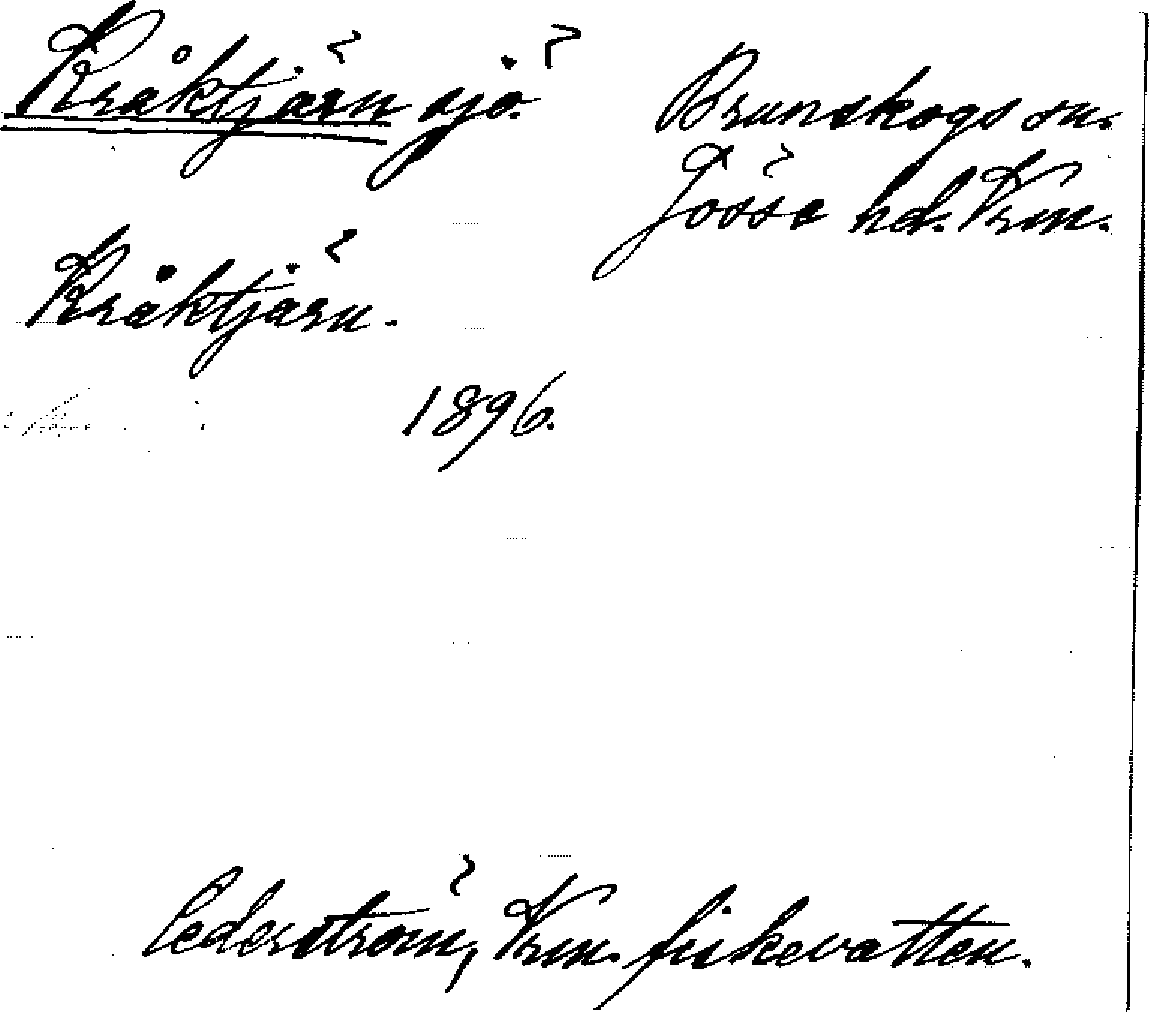 Kråktjärn sjö.
Brunskogs sn.
Jösse hd. Vrm.
Kråktjärn.
1896.
Cederström, Vrm. fiskevatten.